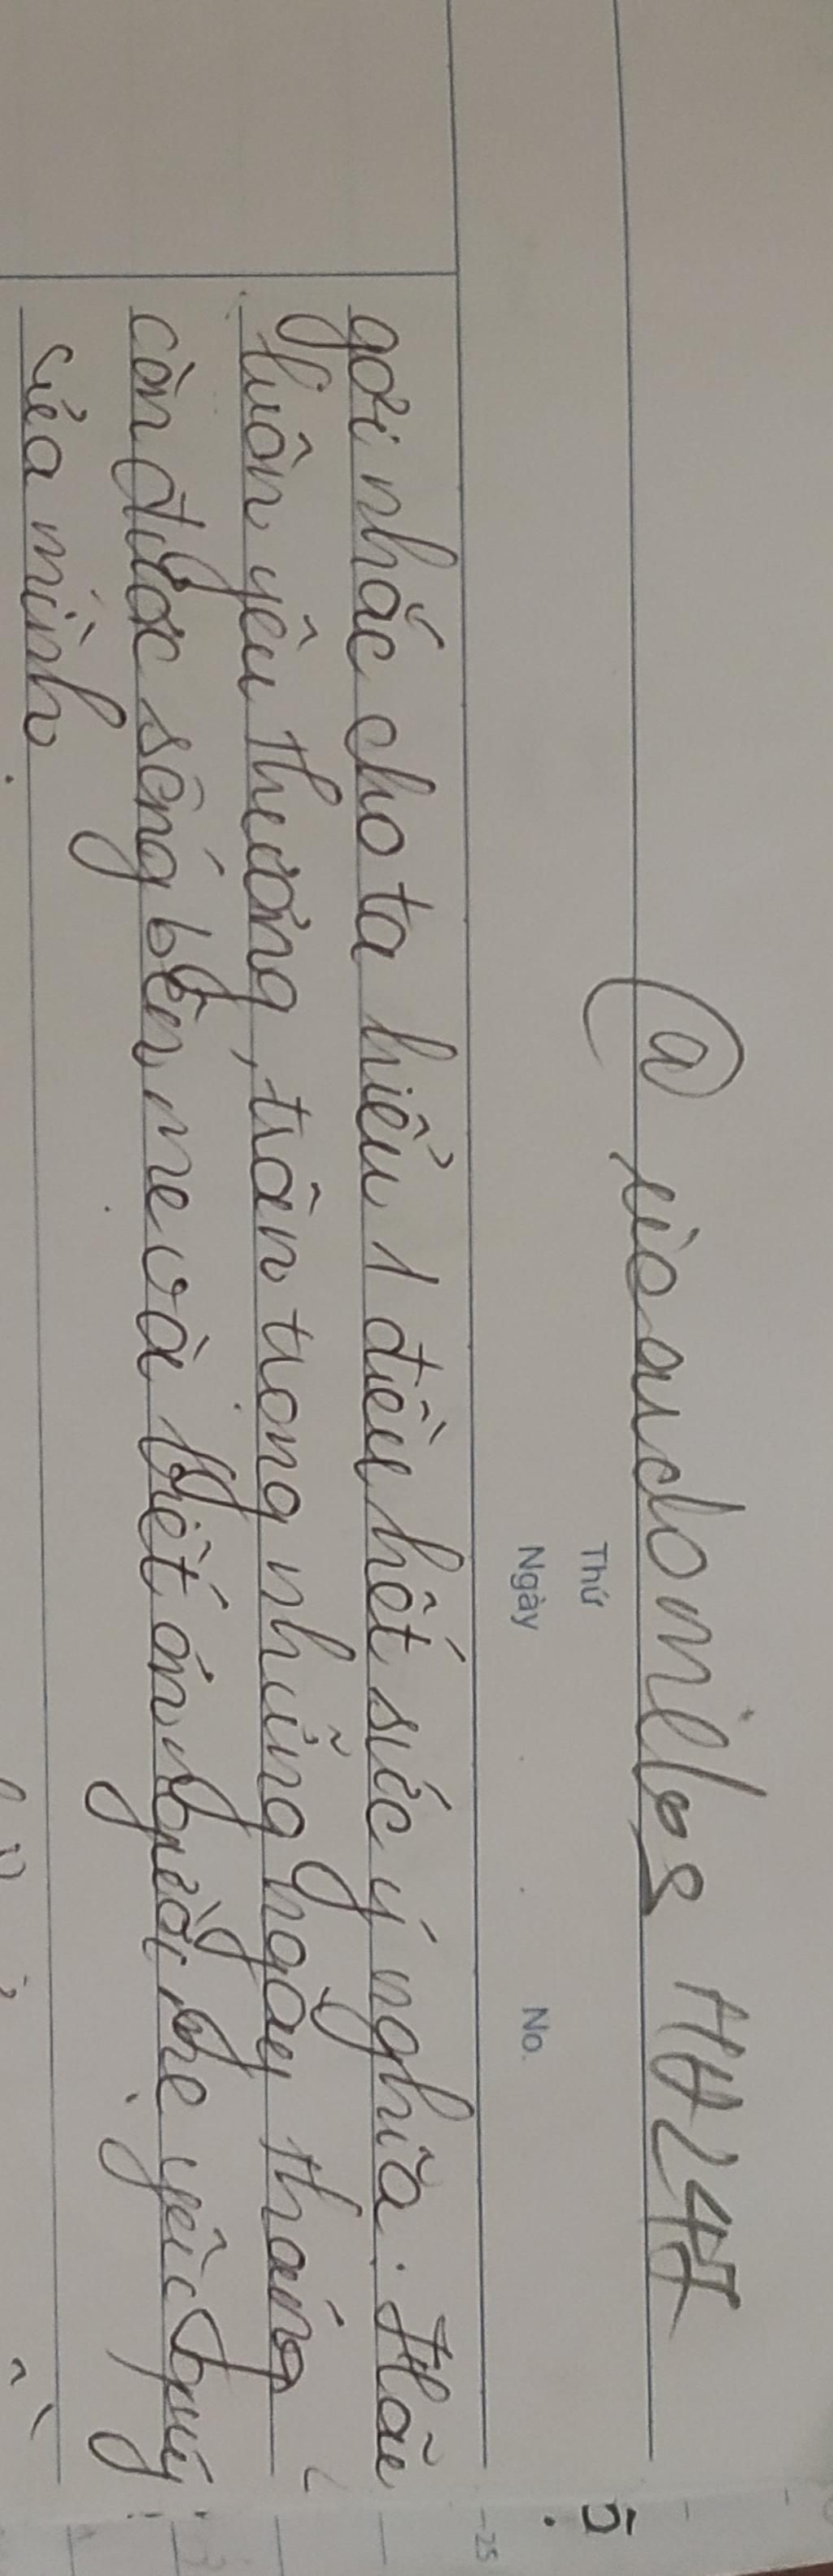 Thứ
Ngày No.
gợi nhắc cho ta hiểu 1 điều hết sức ý nghĩa: Hãy
luôn yêu thương, trân trọng những ngày tháng
còn được sống bên mẹ và biết ơn người mẹ yêu quý
của mình